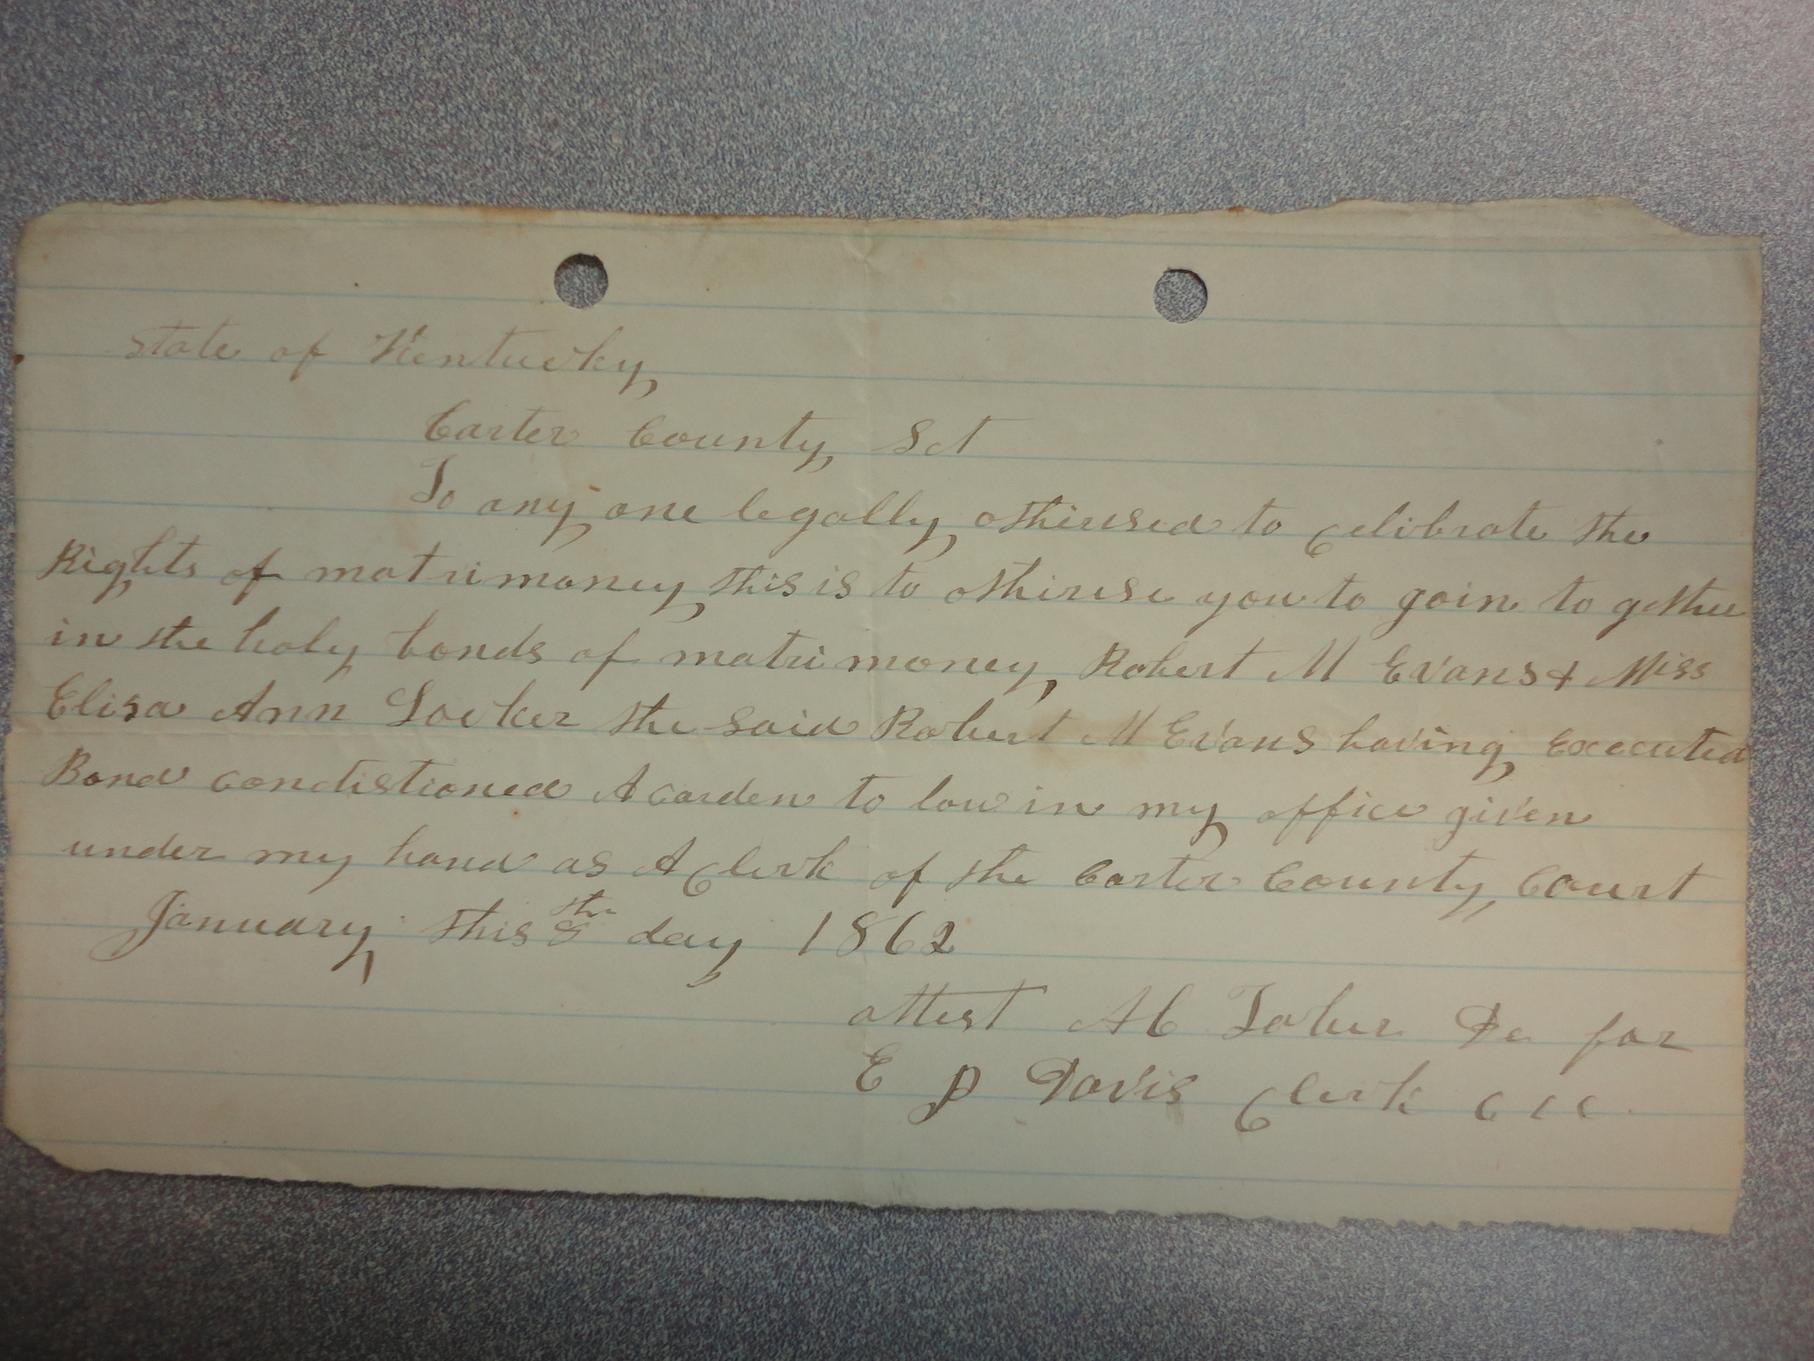 State of Kentucky,
Carter County, Sct
To any one legally othirised to Celibrate the
Rights of matrimoney this is to othirise you to goin to gether
in the holy bonds of matrimoney, Robert M Evans & Miss
Elisa Ann Locker the said Robert M Evans having Executed
Bond condistioned Acarden to low in my office given
under my hand as A Clerk of the Carter County, Court
January, this 8th day 1862
attest A C Dc for
E P Davis Clerk C C C